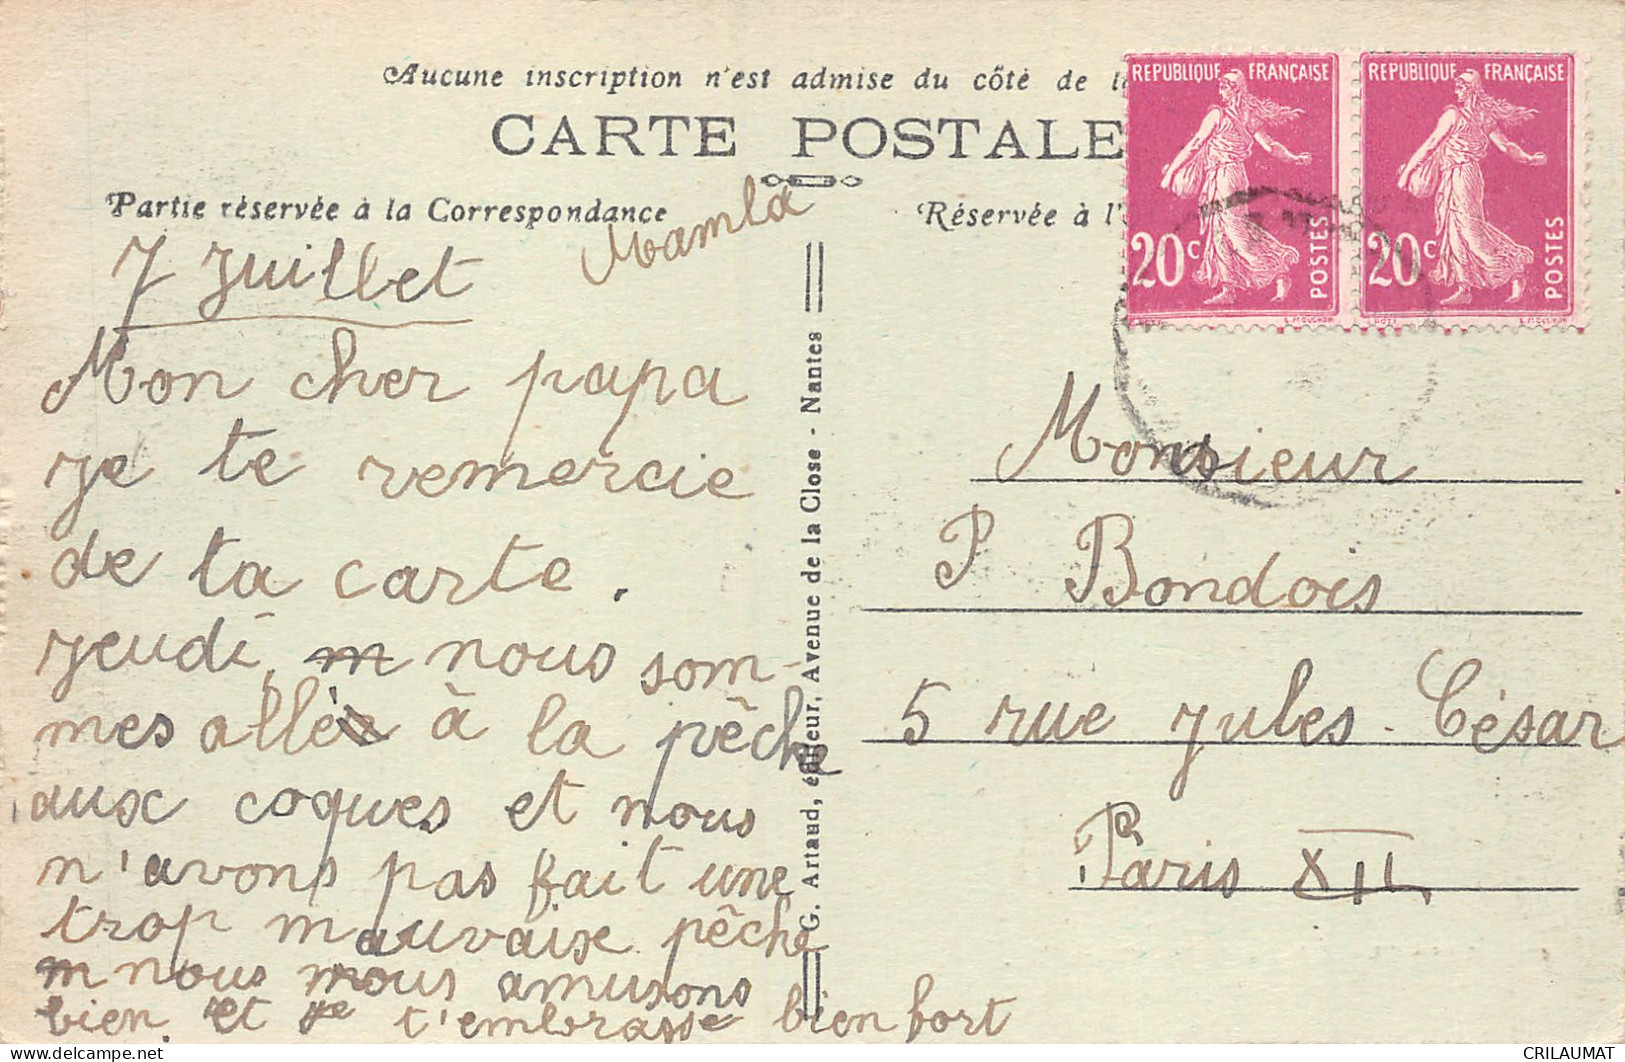 Aucune inscription n'est admise du côté de l
CARTE POSTALE
Partie réservée à la Correspondance
Réservée à l'
REPUBLIQUE FRANÇAISE
20c
POSTES
REPUBLIQUE FRANÇAISE
20c
POSTES
L. MOUCHON
7 Juillet
Mon cher papa
je te remercie
de ta carte.
jeudi, nous som-
mes allé à la pêche
aux coques et nous
n'avons pas fait une
trop mauvaise pêche
nous nous amusons
bien. et je t'embrasse bien fort
G. Artaud, éditeur, Avenue de la Close - Nantes
Monsieur
P Bondois
5 rue Jules-César
Paris XII
delcampe.net
CRILAUMAT